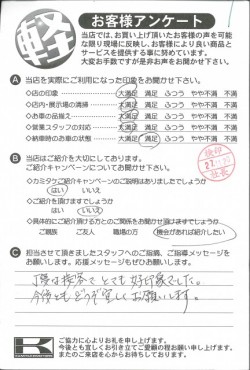 軽
お客様アンケート
当店では、お買い上げ頂いたお客様の声を可能
な限り現場に反映し、お客様により良い商品と
サービスを提供する事に努めています。
大変お手数ですが是非お声をお聞かせ下さい。
A 当店を実際にご利用になった印象をお聞かせ下さい。
◇店の印象 大満足 満足 ふつう やや不満 不満
◇店内・展示場の清掃 大満足 満足 ふつう やや不満 不満
◇お車の品揃え 大満足 満足 ふつう やや不満 不満
◇営業スタッフの対応 大満足 満足 ふつう やや不満 不満
◇納車時のお車の状態 大満足 満足 ふつう やや不満 不満
B 当店はご紹介を大切にしております。
ご紹介キャンペーンについてお聞かせ下さい。
◇カミタケご紹介キャンペーンのご説明はありましたでしょうか
はい いいえ
◇ご紹介を頂けますでしょうか
はい いいえ
◇具体的にご紹介頂ける方とのご関係をお聞かせ頂けますでしょうか
ご親族 ご友人 職場の方 機会があれば紹介したい
C 担当させて頂きましたスタッフへのご指摘、ご指導メッセージを
お願いします。応援メッセージもぜひお願いします。
丁寧な接客で とても好印象でした。
今後とも どうぞ宜しくお願いします。
K
ご協力に心よりお礼を申し上げます。
今後とも宜しくお引き立てご愛顧の程お願い申し上げます。
またのご来店を心からお待ちしております。